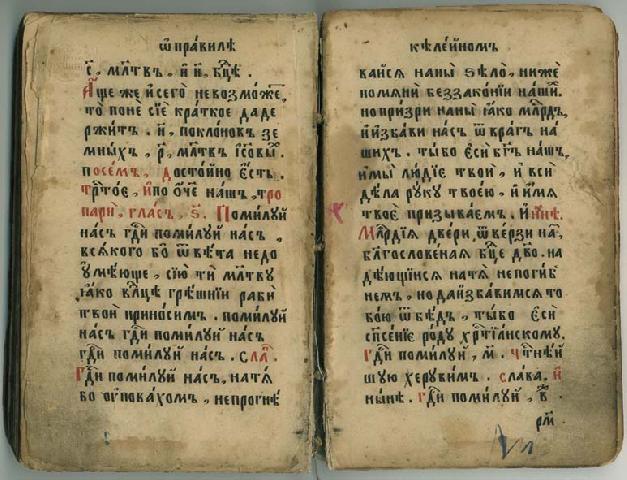 ѿ пра́вилѣ
с҃, млт҃въ, и҆ н҃, бц҃ѣ.
А҆ще же и҆ сего̀ невозмо́жетъ,
то̀ поне сїѐ кра́ткое да де
ржи́тъ. н҃, покло́новъ зе
мны́хъ, р҃, млт҃въ і҆с҃овы.
посе́мъ, досто́йно є҆́сть.
трист҃о́е, и҆ по о҆́ч҃е на́шъ, тро
парѝ, гла́съ, ѕ҃. Поми́лꙋй
на́съ гд҃и поми́лꙋй на́съ,
всѧ́кого бо ѿвѣ́та недо
ᲂумѣ́юще, сїю̀ ти млт҃вꙋ
ꙗ҆́ко влц҃ѣ грѣ́шнїи рабѝ
твоѝ прино́симъ. поми́лꙋй
на́съ гд҃и поми́лꙋй на́съ
гд҃и поми́лꙋй на́съ. сла́в.
Гд҃и поми́лꙋй на́съ, на тѧ̀
бо ᲂупова́хомъ, не прогнѣ́
ке́лейномъ
вайсѧ на ны̀ ѕѣло̀, нижѐ
помѧнѝ беззако́нїи на́ши.
но при́зри на ны̀ ꙗ҆́ко млр҃дъ,
и҆ и҆зба́ви на́съ ѿ вра́гъ на
шихъ. ты́ бо є҆сѝ бг҃ъ на́шъ,
и҆ мы̀ лю́дїе твоѝ, и҆ всѝ
дѣ́ла рꙋ́кꙋ твоє́ю, и҆ и҆́мѧ
твоѐ призыва́емъ. И҆ ны́нѣ.
Млр҃дїѧ две́ри ѿве́рзи на́м,
блг҃ослове́наѧ бц҃е дв҃о. на
дѣ́ющїисѧ на тѧ̀ не поги́б
немъ, но да и҆зба́вимсѧ то
бо́ю ѿ бѣ́дъ, ты́ бо є҆сѝ
сп҃се́нїе ро́дꙋ хрⷭ҇тїа́нскомꙋ.
Гд҃и поми́лꙋй, м҃. чⷭ҇тнѣ́й
шꙋю херꙋви́мъ. сла́ва. и҆
ны́не. гд҃и поми́лꙋй, в҃.
рм҃